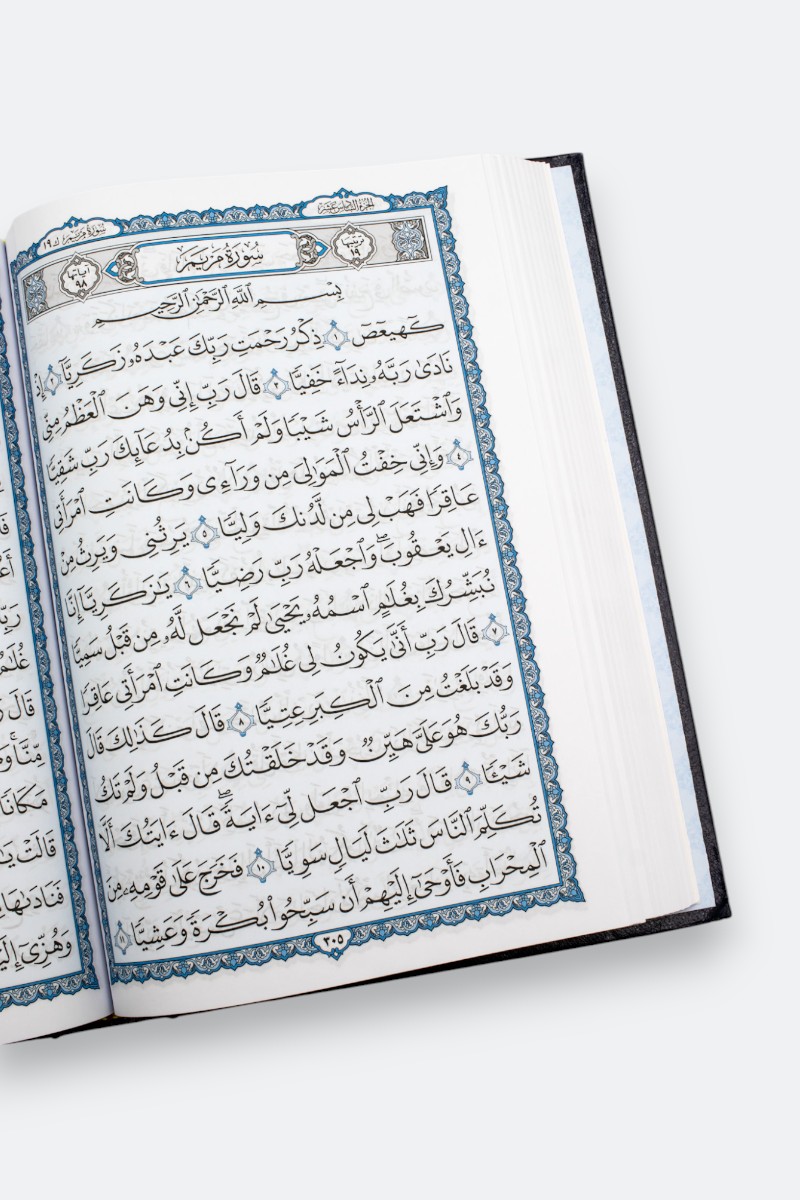 الجزء السادس عشر
سورة مريم ١٩
ترتيبها ١٩
سُورَةُ مَرْيَمَ
آياتها ٩٨
بِسْمِ ٱللَّهِ ٱلرَّحْمَٰنِ ٱلرَّحِيمِ
كٓهيعٓصٓ ١ ذِكْرُ رَحْمَتِ رَبِّكَ عَبْدَهُۥ زَكَرِيَّآ ٢ إِذْ
نَادَىٰ رَبَّهُۥ نِدَآءً خَفِيًّا ٣ قَالَ رَبِّ إِنِّى وَهَنَ ٱلْعَظْمُ مِنِّى
وَٱشْتَعَلَ ٱلرَّأْسُ شَيْبًا وَلَمْ أَكُنۢ بِدُعَآئِكَ رَبِّ شَقِيًّا
٤ وَإِنِّى خِفْتُ ٱلْمَوَٰلِىَ مِن وَرَآءِى وَكَانَتِ ٱمْرَأَتِى
عَاقِرًا فَهَبْ لِى مِن لَّدُنكَ وَلِيًّا ٥ يَرِثُنِى وَيَرِثُ مِنْ
ءَالِ يَعْقُوبَ ۖ وَٱجْعَلْهُ رَبِّ رَضِيًّا ٦ يَٰزَكَرِيَّآ إِنَّا
نُبَشِّرُكَ بِغُلَٰمٍ ٱسْمُهُۥ يَحْيَىٰ لَمْ نَجْعَل لَّهُۥ مِن قَبْلُ سَمِيًّا
٧ قَالَ رَبِّ أَنَّىٰ يَكُونُ لِى غُلَٰمٌ وَكَانَتِ ٱمْرَأَتِى عَاقِرًا
وَقَدْ بَلَغْتُ مِنَ ٱلْكِبَرِ عِتِيًّا ٨ قَالَ كَذَٰلِكَ قَالَ
رَبُّكَ هُوَ عَلَىَّ هَيِّنٌ وَقَدْ خَلَقْتُكَ مِن قَبْلُ وَلَمْ تَكُ
شَيْـًٔا ٩ قَالَ رَبِّ ٱجْعَل لِّىٓ ءَايَةً ۚ قَالَ ءَايَتُكَ أَلَّا
تُكَلِّمَ ٱلنَّاسَ ثَلَٰثَ لَيَالٍ سَوِيًّا ١٠ فَخَرَجَ عَلَىٰ قَوْمِهِۦ مِنَ
ٱلْمِحْرَابِ فَأَوْحَىٰٓ إِلَيْهِمْ أَن سَبِّحُوا۟ بُكْرَةً وَعَشِيًّا ١١
٣٠٥
رَبِّ
غُلَٰمٌ
قَالَ
مِّنَّا
مَكَانًا
قَالَتْ
فَنَادَىٰهَا
وَهُزِّىٓ